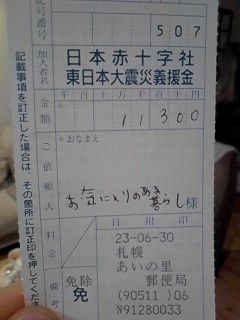 記号番号
507
加入者名
日本赤十字社
東日本大震災義援金
金額
千百十万千百十円
11300
※
おなまえ
ご依頼人
お気に入りのある暮らし様
料金
備考
免除
免
日附印
23-06-30
札幌
あいの里
郵便局
(90511)06
N91280033
記載事項を訂正した場合は、その箇所に訂正印を押してくださ